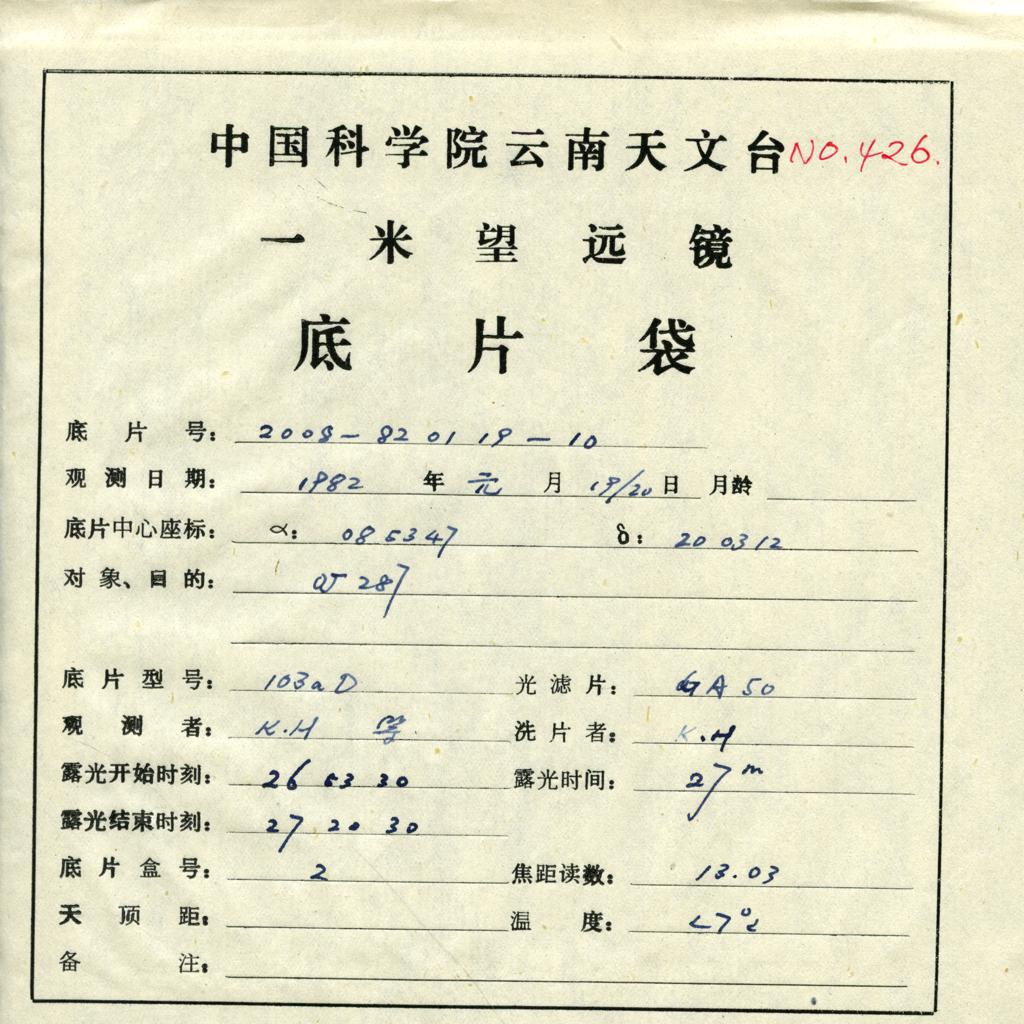 中国科学院云南天文台 NO.426.
一米望远镜
底片袋
底片号: 2008-820119-10
观测日期: 1982 年 元 月 19/20 日 月龄
底片中心座标: α: 085347 δ: 200312
对象、目的: OJ 287
底片型号: 103aD 光滤片: GA 50
观测者: K.H 洗片者: K.H
露光开始时刻: 26 53 30 露光时间: 27m
露光结束时刻: 27 20 30
底片盒号: 2 焦距读数: 13.03
天顶距: 温度:
备注: